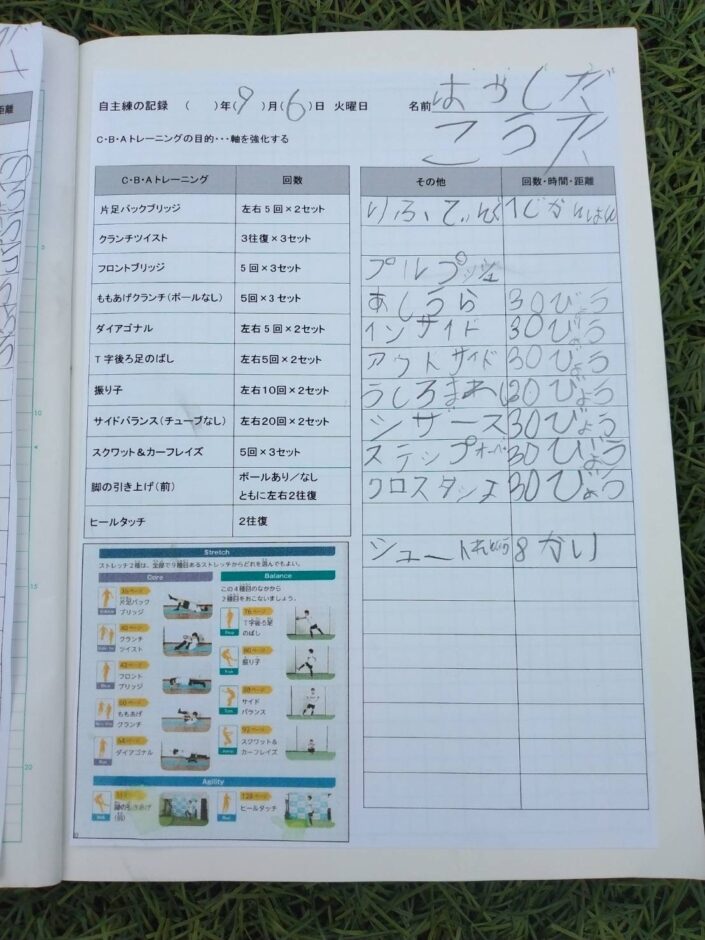 自主練の記録 ( )年(9)月(6)日 火曜日 名前 はやしだ
こうた
C・B・Aトレーニングの目的・・・軸を強化する
C・B・Aトレーニング 回数
片足バックブリッジ 左右5回×2セット
クランチツイスト 3往復×3セット
フロントブリッジ 5回×3セット
ももあげクランチ(ボールなし) 5回×3セット
ダイアゴナル 左右5回×2セット
T字後ろ足のばし 左右5回×2セット
振り子 左右10回×2セット
サイドバランス(チューブなし) 左右20回×2セット
スクワット&カーフレイズ 5回×3セット
脚の引き上げ(前) ボールあり/なし
ともに左右2往復
ヒールタッチ 2往復
その他 回数・時間・距離
りふてぃんぐ 1じかんはん
プルプッシュ
あしうら 30びょう
インサイド 30びょう
アウトサイド 30びょう
うしろまわし 30びょう
シザース 30びょう
ステップオーバー 30びょう
クロスタンゴ 30びょう
シュート 8かい
Stretch
ストレッチ2種は、全部で9種目あるストレッチからどれを選んでもよい。
Core
片足バック
ブリッジ
クランチ
ツイスト
フロント
ブリッジ
ももあげ
クランチ
ダイアゴナル
Balance
この4種目のなかから
2種目をおこないましょう。
76ページ
T字後ろ足
のばし
振り子
サイド
バランス
92ページ
スクワット&
カーフレイズ
Agility
脚の引きあげ
(前)
ヒールタッチ
5
10
15
20